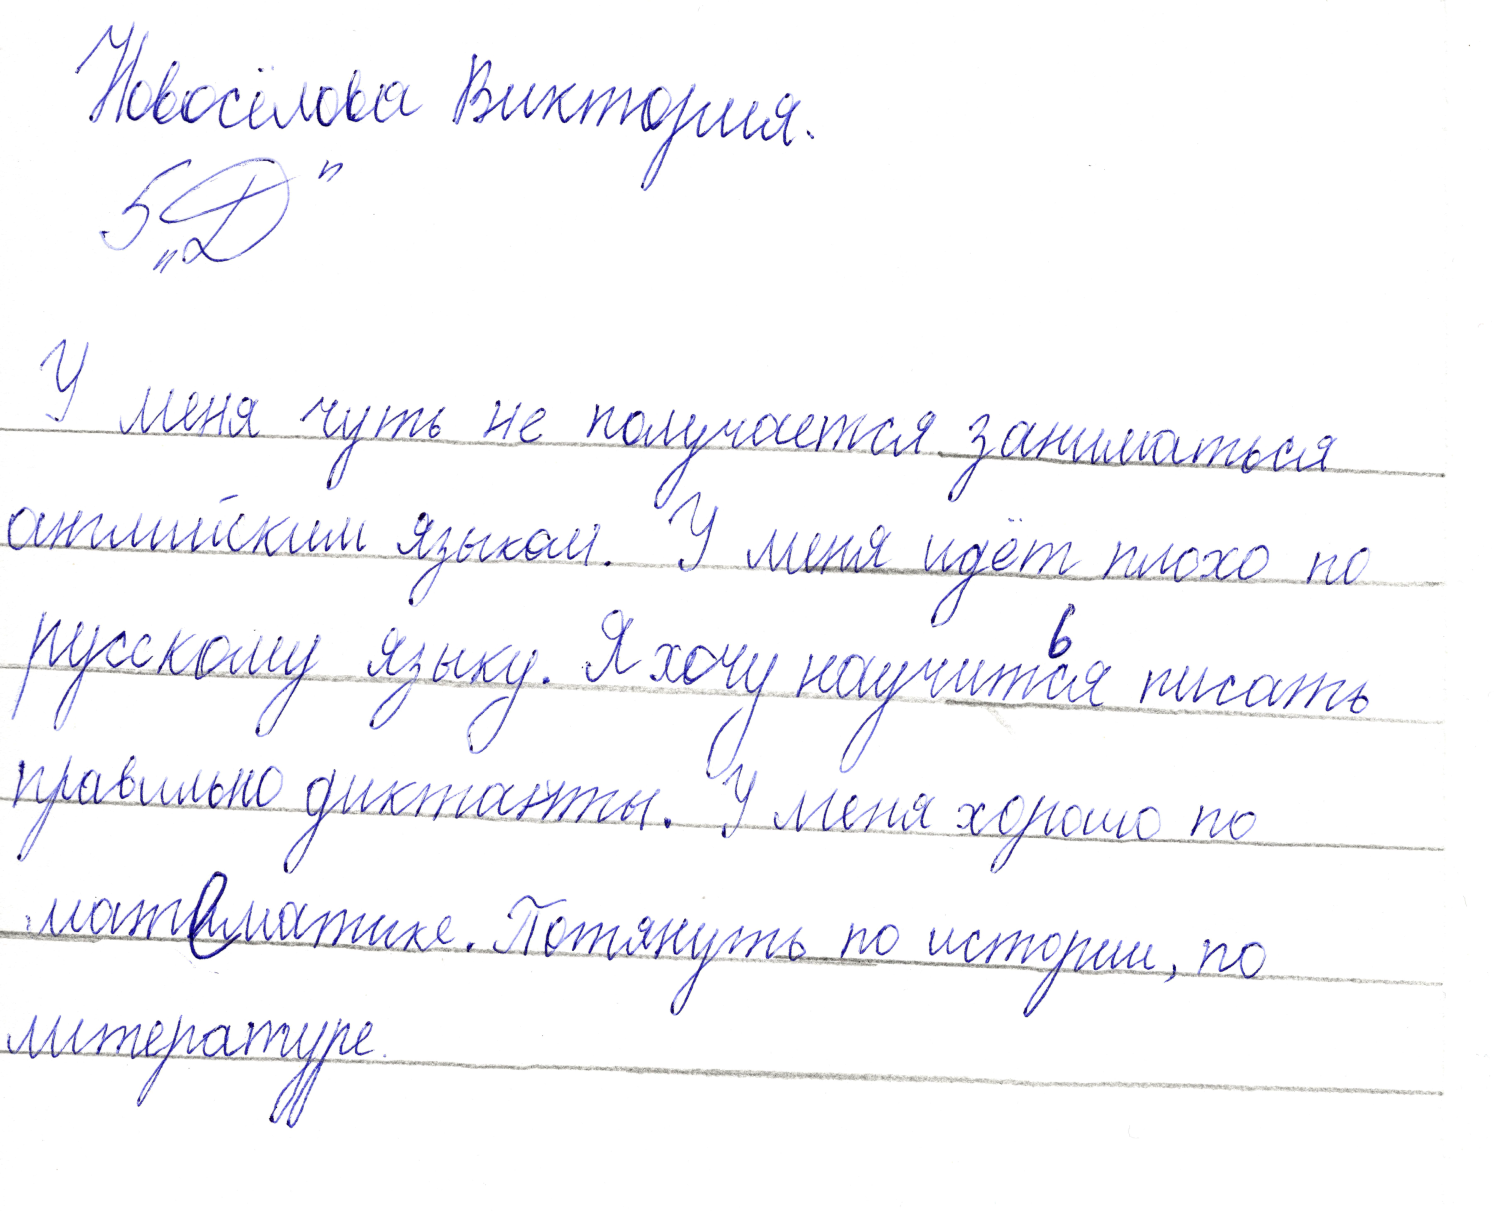 Новосёлова Виктория.
5 „Д"
У меня чуть не получается заниматься
английским языком. У меня идёт плохо по
русскому языку. Я хочу научиться писать
правильно диктанты. У меня хорошо по
математике. Потянуть по истории, по
литературе.